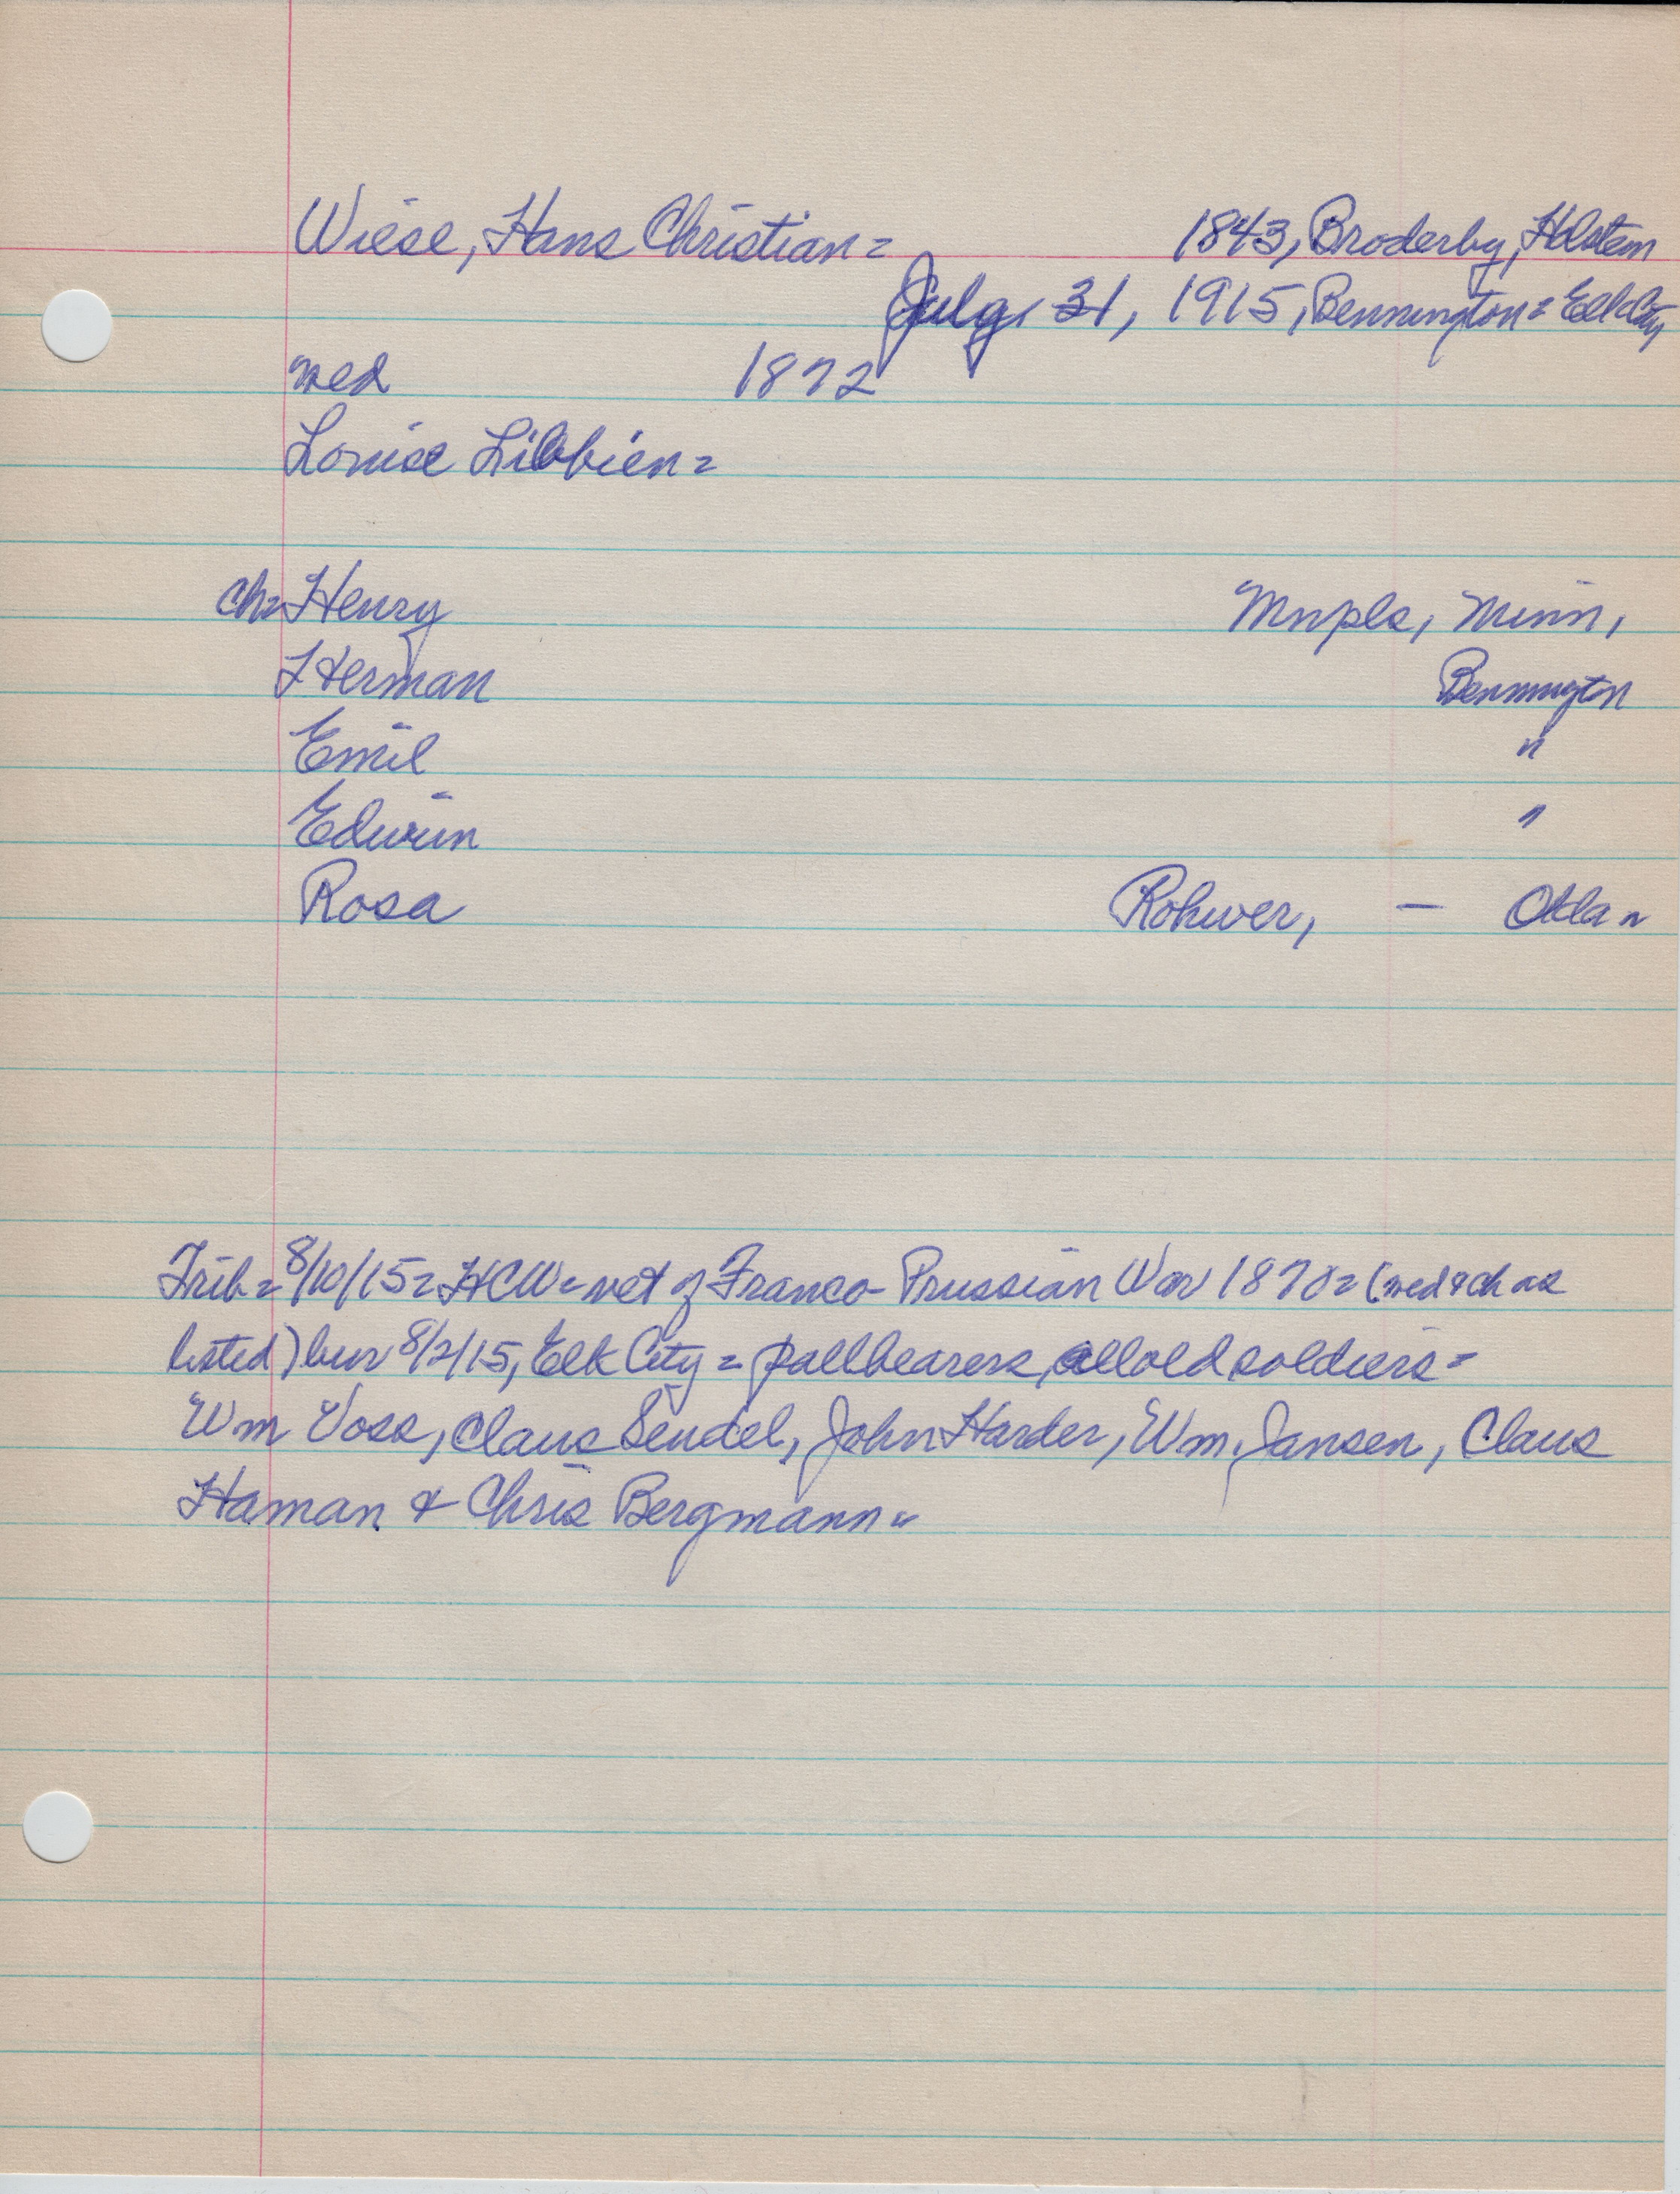 Wiese, Hans Christian = 1843, Broderby, Holstein
July 31, 1915, Bennington = Elk City
wed 1872
Louise Libbien =
ch = Henry Mnpls, Minn,
Herman Bennington
Emil "
Edwin "
Rosa Rohwer, — Okla =
Trib = 8/10/15 = HCW = vet of Franco-Prussian War 1870 = (wed & ch as
listed) bur 8/2/15, Elk City = pallbearers, all old soldiers =
Wm Voss, Claus Sendel, John Harder, Wm Jansen, Claus
Haman & Chris Bergmann =